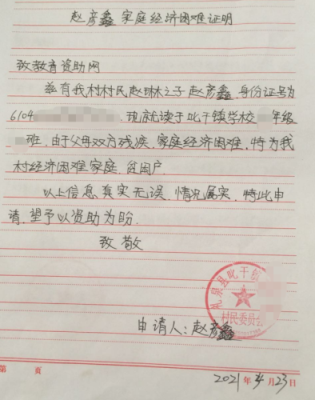 赵彦鑫 家庭经济困难证明
致教育资助网
兹有我村村民赵林之子赵彦鑫.身份证号为
6104 现就读于叱干镇学校 年级
班.由于父母双方残疾.家庭经济困难,特为我
村经济困难家庭.贫困户.
以上信息真实无误.情况属实.特此申
请.望予以资助为盼.
致敬
礼泉县叱干
村民委员会
申请人:赵彦鑫
第 頁
2021年4月23日